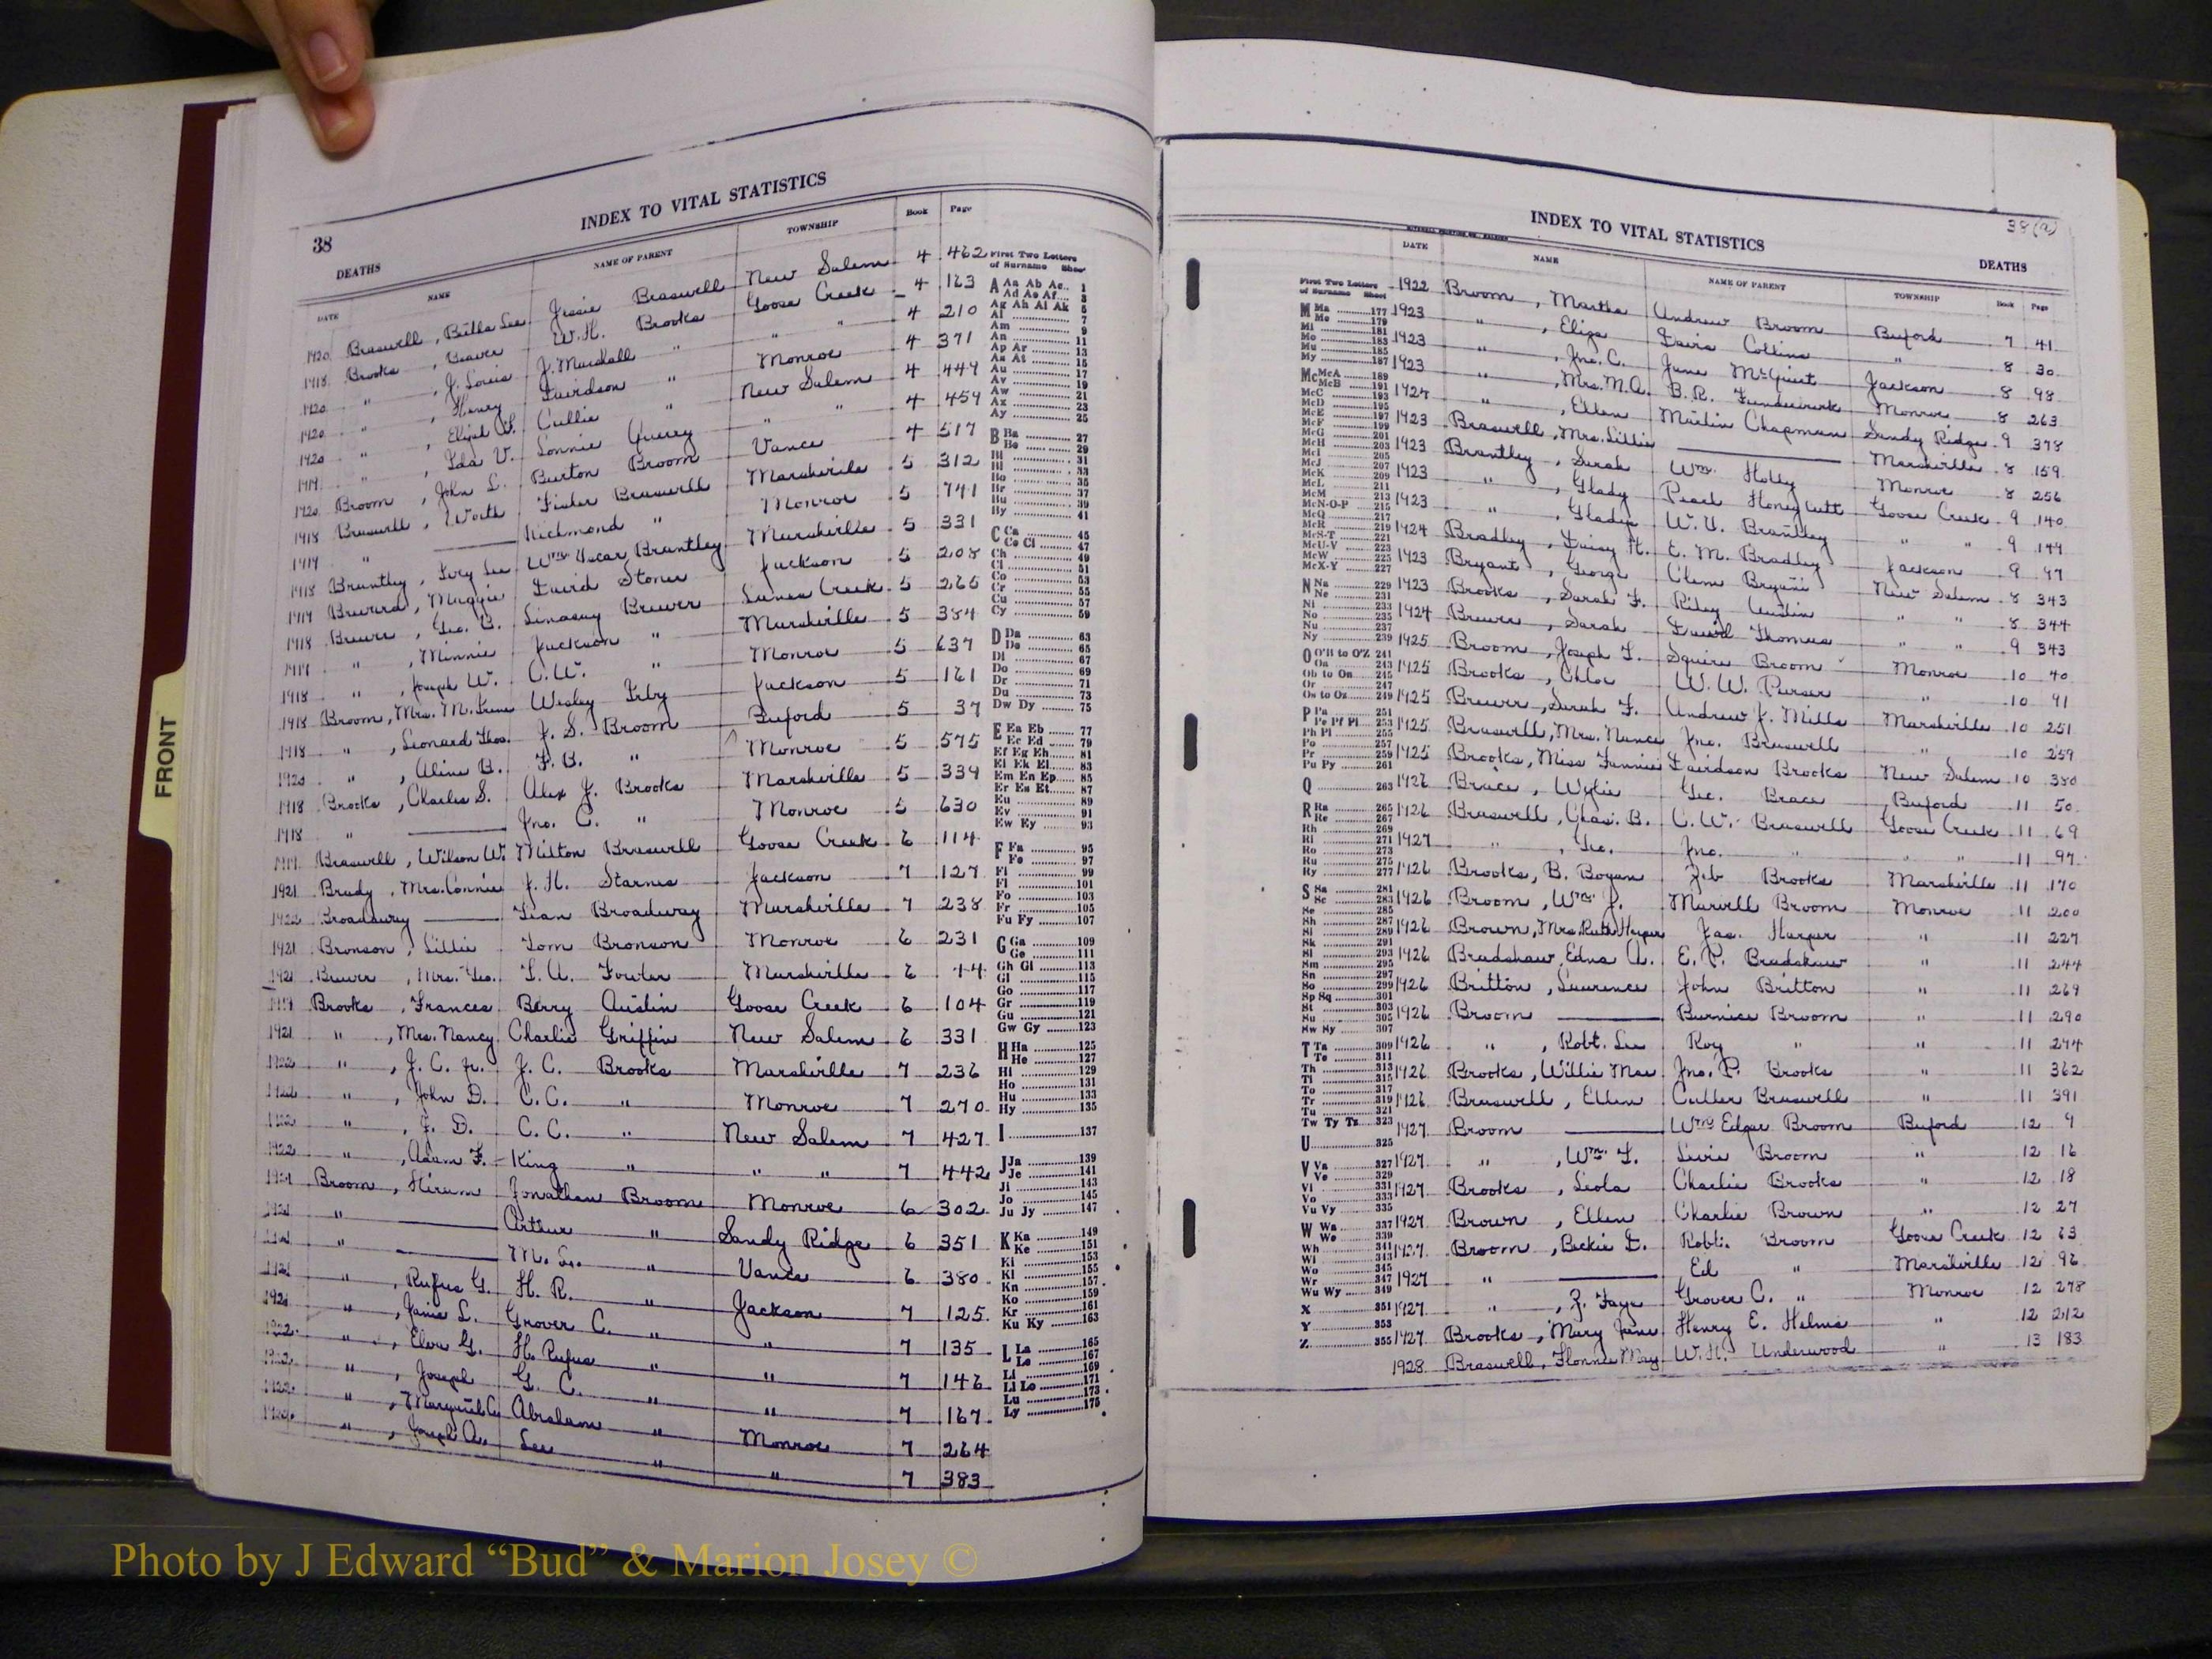 38
INDEX TO VITAL STATISTICS
DEATHS
DATE NAME NAME OF PARENT TOWNSHIP Book Page
1920 Braswell, Beulla Lee Jessie Braswell New Salem 4 462
1918 Brooks, Beaver W. H. Brooks Goose Creek 4 163
1920 " , J. Louis J. Marshall " " " 4 210
1920 " , Henry Davidson " Monroe 4 371
1920 " , Elijah Cullie " New Salem 4 449
1919 " , Ida V. Lonnie Querry " " 4 459
1920 Broom, John L. Burton Broom Vance 4 517
1918 Braswell, Worth Fisher Braswell Marshville 5 312
1919 " ——— Richmond " Monroe 5 741
1918 Brantley, Lee Wm. Oscar Brantley Marshville 5 331
1919 Brevard, Maggie David Stone Jackson 5 208
1918 Brewer, Geo. B. Lindsay Brewer Lanes Creek 5 265
1919 " , Minnie Jackson " Marshville 5 384
1918 " , Joseph W. C. W. " Monroe 5 637
1918 Broom, Mrs. M. Wesley Irby Jackson 5 161
1918 " , Leonard Thos. J. S. Broom Buford 5 37
1920 " , Aline B. F. B. " Monroe 5 575
1918 Brooks, Charles S. Alex J. Brooks Marshville 5 339
1918 " ——— Jno. C. " Monroe 5 630
Braswell, Wilson W. Milton Braswell Goose Creek 6 114
1921 Brady, Mrs. Connie J. H. Starnes Jackson 7 127
1922 Broadaway ——— Dean Broadway Marshville 7 238
1921 Bronson, Lillie Tom Bronson Monroe 6 231
1921 Brewer, Mrs. Geo. L. A. Fowler Marshville 6 44
Brooks, Frances Berry Austin Goose Creek 6 104
1921 " , Mrs. Nancy Charlie Griffin New Salem 6 331
1922 " , J. C. Jr. J. C. Brooks Marshville 7 236
1922 " , John D. C. C. " Monroe 7 270
1922 " , J. D. C. C. " New Salem 7 427
1922 " , Adam F. King " " " 7 442
1921 Broom, Hiram Jonathan Broom Monroe 6 302
1921 " ——— Arthur " Sandy Ridge 6 351
1921 " ——— M. L. " Vance 6 380
1921 " , Rufus G. H. R. " Jackson 7 125
1921 " , Janie L. Grover C. " " 7 135
1922 " , G. H. Rufus " " 7 146
1922 " , Joseph G. C. " " 7 167
1922 " , Abraham " Monroe 7 264
" , Joseph A. Lee " " 7 383
First Two Letters of Surname Sheet
A Aa Ab Ac 1
Ad Ae Af 3
Ag Ah Ai Ak 5
Al 7
Am 9
An 11
Ap Ar 13
As At 15
Au 17
Av 19
Aw 21
Ax 23
Ay 25
B Ba 27
Be 29
Bi 31
Bl 33
Bo 35
Br 37
Bu 39
By 41
C Ca 45
Ce Ci 47
Ch 49
Cl 51
Co 53
Cr 55
Cu 57
Cy 59
D Da 63
De 65
Di 67
Do 69
Dr 71
Du 73
Dw Dy 75
E Ea Eb 77
Ec Ed 79
Ef Eg Eh 81
Ei Ek El 83
Em En Ep 85
Er Es Et 87
Eu 89
Ev 91
Ew Ey 93
F Fa 95
Fe 97
Fi 99
Fl 101
Fo 103
Fr 105
Fu Fy 107
G Ga 109
Ge 111
Gh Gi 113
Gl 115
Go 117
Gr 119
Gu 121
Gw Gy 123
H Ha 125
He 127
Hi 129
Ho 131
Hu 133
Hy 135
I 137
J Ja 139
Je 141
Ji 143
Jo 145
Ju Jy 147
K Ka 149
Ke 151
Ki 153
Kl 155
Kn 157
Ko 159
Kr 161
Ku Ky 163
L La 165
Le 167
Li 169
Ll Lo 171
Lu 173
Ly 175
FRONT
38(a)
INDEX TO VITAL STATISTICS
DEATHS
DATE NAME NAME OF PARENT TOWNSHIP Book Page
First Two Letters of Surname Sheet
M Ma 177
Me 179
Mi 181
Mo 183
Mu 185
My 187
Mc McA 189
McB 191
McC 193
McD 195
McE 197
McF 199
McG 201
McH 203
McI 205
McJ 207
McK 209
McL 211
McM 213
McN-O-P 215
McQ 217
McR 219
McS-T 221
McU-V 223
McW 225
McX-Y 227
N Na 229
Ne 231
Ni 233
No 235
Nu 237
Ny 239
O O'B to O'Z 241
Oa 243
Ob to On 245
Or 247
Os to Oz 249
P Pa 251
Pe Pf Pl 253
Ph Pi 255
Po 257
Pr 259
Pu Py 261
Q 263
R Ra 265
Re 267
Rh 269
Ri 271
Ro 273
Ru 275
Ry 277
S Sa 281
Sc 283
Se 285
Sh 287
Si 289
Sk 291
Sl 293
Sm 295
Sn 297
So 299
Sp Sq 301
St 303
Su 305
Sw Sy 307
T Ta 309
Te 311
Th 313
Ti 315
To 317
Tr 319
Tu 321
Tw Ty Tz 323
U 325
V Va 327
Ve 329
Vi 331
Vo 333
Vu Vy 335
W Wa 337
We 339
Wh 341
Wi 343
Wo 345
Wr 347
Wu Wy 349
X 351
Y 353
Z 355
1922 Broom, Martha Andrew Broom Buford 7 41
1923 " , Eliza Davis Collins " 8 30
1923 " , Jno. C. June McGuirt Jackson 8 98
1923 " , Mrs. M. A. B. R. Funderburk Monroe 8 263
1924 " , Ellen Martin Chapman Sandy Ridge 9 378
1923 Braswell, Mrs. Lillie ——— Marshville 8 159
1923 Brantley, Sarah Wm. Holly Monroe 8 256
1923 " , Glady Pearl Honeycutt Goose Creek 9 140
1923 " , Gladys W. V. Brantley " " 9 144
1924 Bradley, Daisy H. E. M. Bradley Jackson 9 47
1923 Bryant, George Clem Bryant New Salem 8 343
1923 Brooks, Sarah F. Riley Austin " " 8 344
1924 Brewer, Sarah David Thomas " " 9 343
1925 Broom, Joseph T. Squire Broom Monroe 10 40
1925 Brooks, Chloe W. W. Purser " 10 91
1925 Brewer, Sarah F. Andrew J. Mills Marshville 10 251
1925 Braswell, Mrs. Nance Jno. Braswell " 10 259
1925 Brooks, Miss Fannie Davidson Brooks New Salem 10 380
1926 Brace, Wylie Geo. Brace Buford 11 50
1926 Braswell, Chas. B. C. W. Braswell Goose Creek 11 69
1927 " , Geo. Jno. " " " 11 97
1926 Brooks, B. Bogan Zeb Brooks Marshville 11 170
1926 Broom, Wm. J. Marvell Broom Monroe 11 200
1926 Brown, Mrs. Ruth Harper Jas. Harper " 11 227
1926 Bradshaw, Edna A. E. P. Bradshaw " 11 244
1926 Britton, Laurence John Britton " 11 269
1926 Broom ——— Burnice Broom " 11 290
1926 " , Robt. Lee Roy " " 11 294
1926 Brooks, Willie Mae Jno. P. Brooks " 11 362
1926 Braswell, Ellen Culler Braswell " 11 391
1927 Broom ——— Wm. Edgar Broom Buford 12 9
1927 " , Wm. T. Levi Broom " 12 16
1927 Brooks, Leola Charlie Brooks " 12 18
1927 Brown, Ellen Charlie Brown " 12 27
1927 Broom, Beckie L. Robt. Broom Goose Creek 12 63
1927 " ——— Ed " Marshville 12 96
1927 " , J. Faye Grover C. " Monroe 12 278
1927 Brooks, Mary Jane Henry E. Helms " 12 212
1928 Braswell, Flonnie May W. H. Underwood " 13 183
Photo by J Edward “Bud” & Marion Josey ©